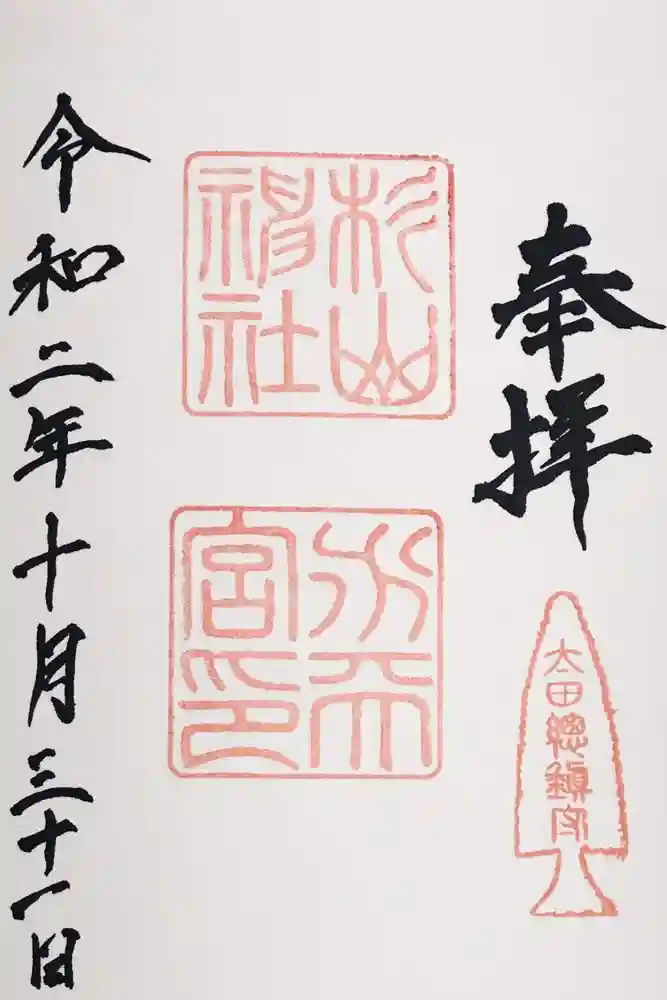 奉拝
太田總鎮守
杉山
神社
水天
宮印
令和二年十月三十一日